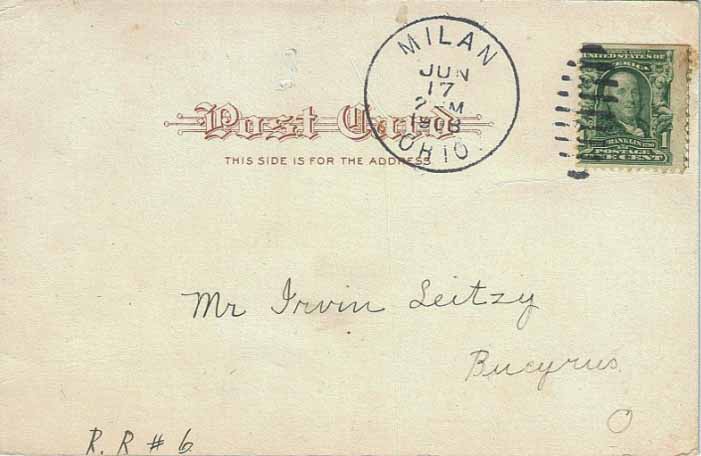 MILAN
JUN
17
2 PM
1908
OHIO.
UNITED STATES OF
AMERICA
FRANKLIN
1
POSTAGE
CENT
Post Card
THIS SIDE IS FOR THE ADDRESS
Mr Irvin Seitzy
Bucyrus
O
R. R # 6